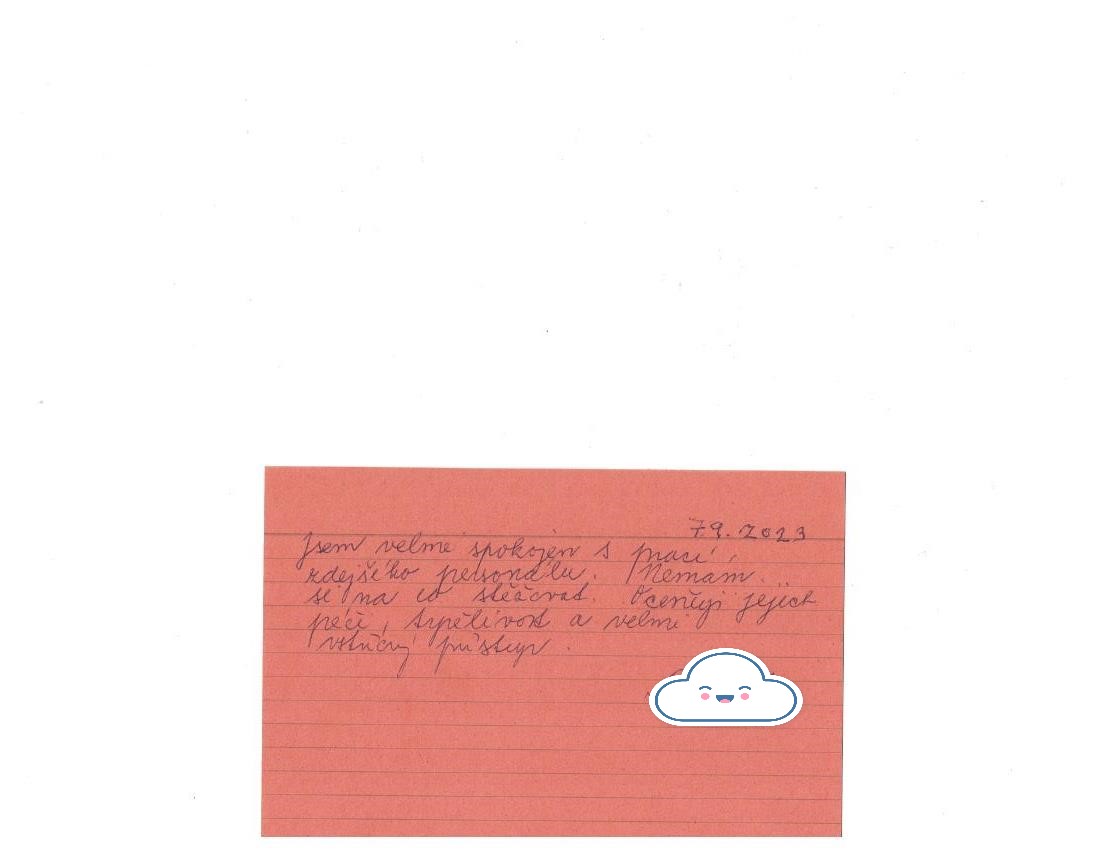 7.9.2023
Jsem velmi spokojen s prací
zdejšího personálu. Nemám
si na co stěžovat. Oceňuji jejich
péči, trpělivost a velmi
vstřícný přístup.